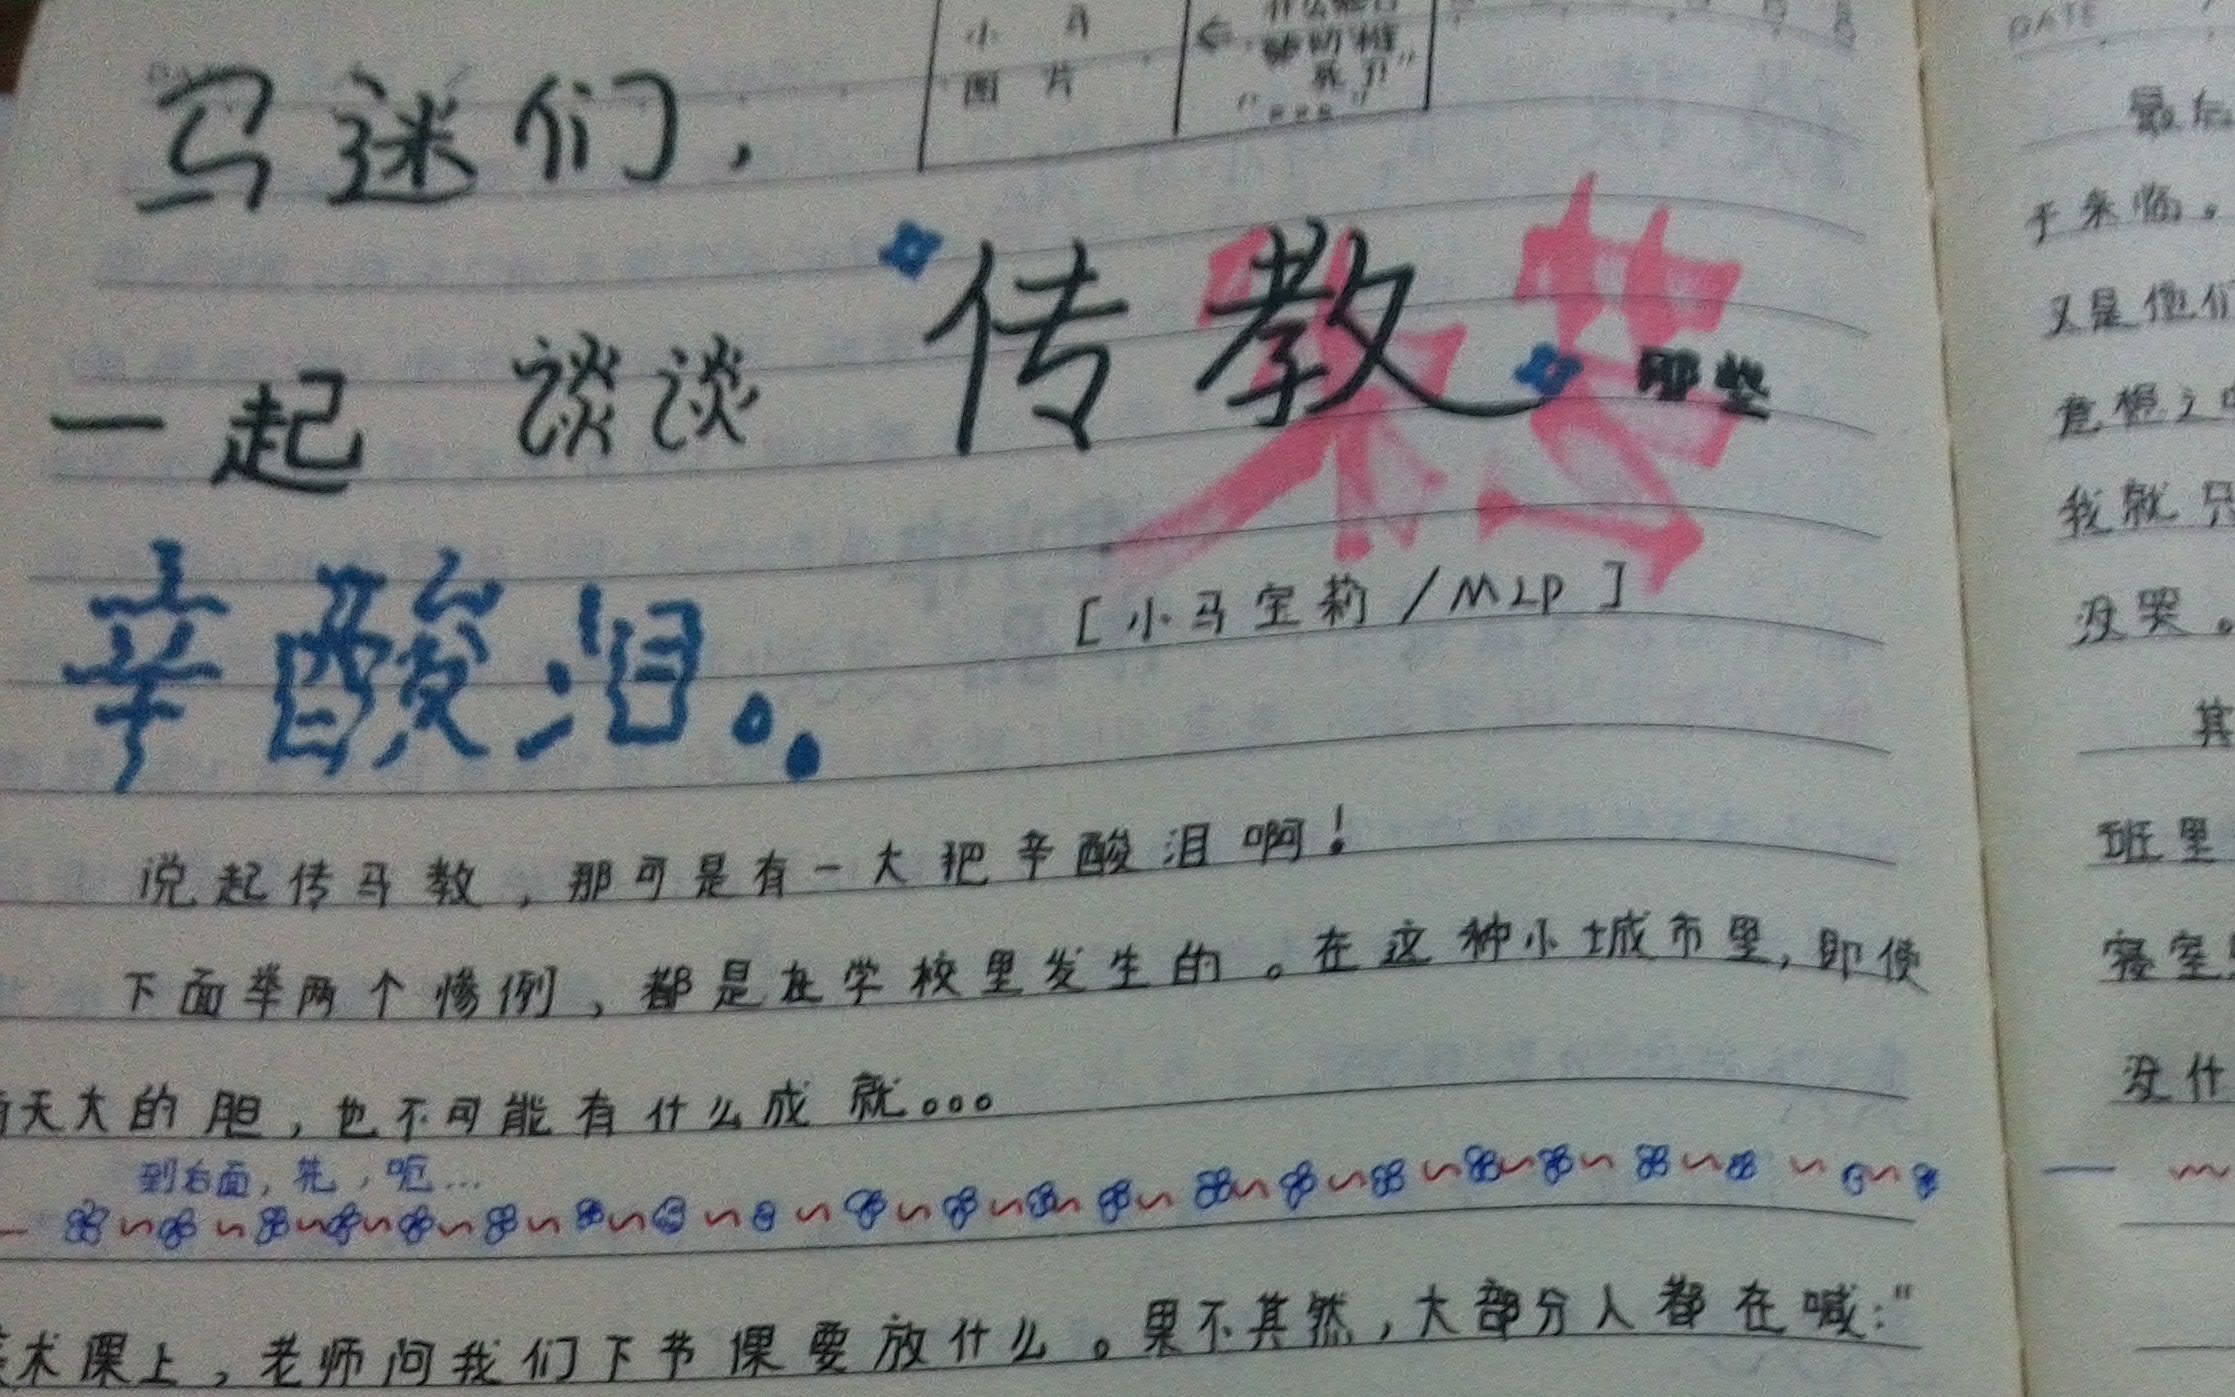 小马
图片
马迷们，
一起谈谈"传教"那些
辛酸泪。
[小马宝莉/MLP]
说起传马教，那可是有一大把辛酸泪啊！
下面举两个惨例，都是在学校里发生的。在这种小城市里，即使
天大的胆，也不可能有什么成就。。。
到右面，先，呃...
术课上，老师问我们下节课要放什么。果不其然，大部分人都在喊："
DATE
最后
于来临。
又是他们
意想之中
我就只
没哭。
其
班里
寝室
没什